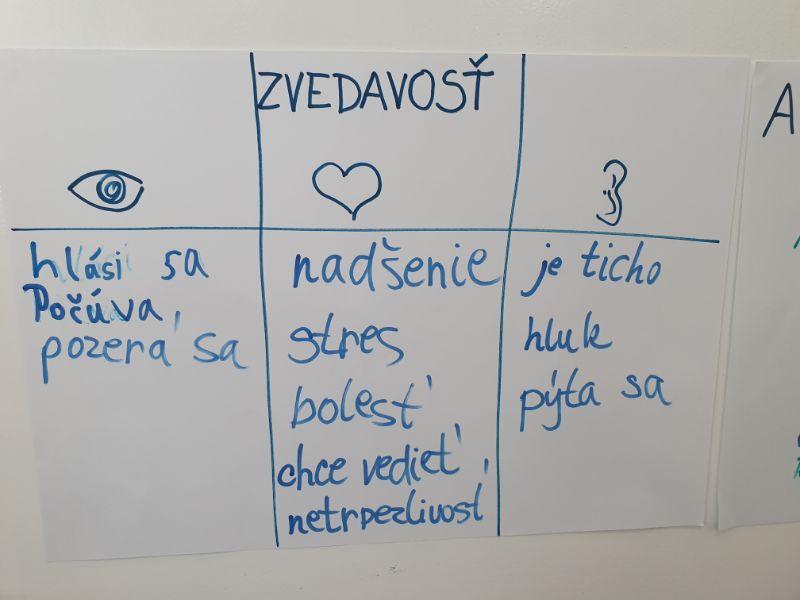 ZVEDAVOSŤ
hlási sa
Počúva,
pozerá sa
nadšenie
stres
bolesť
chce vedieť,
netrpezlivosť
je ticho
hluk
pýta sa
A